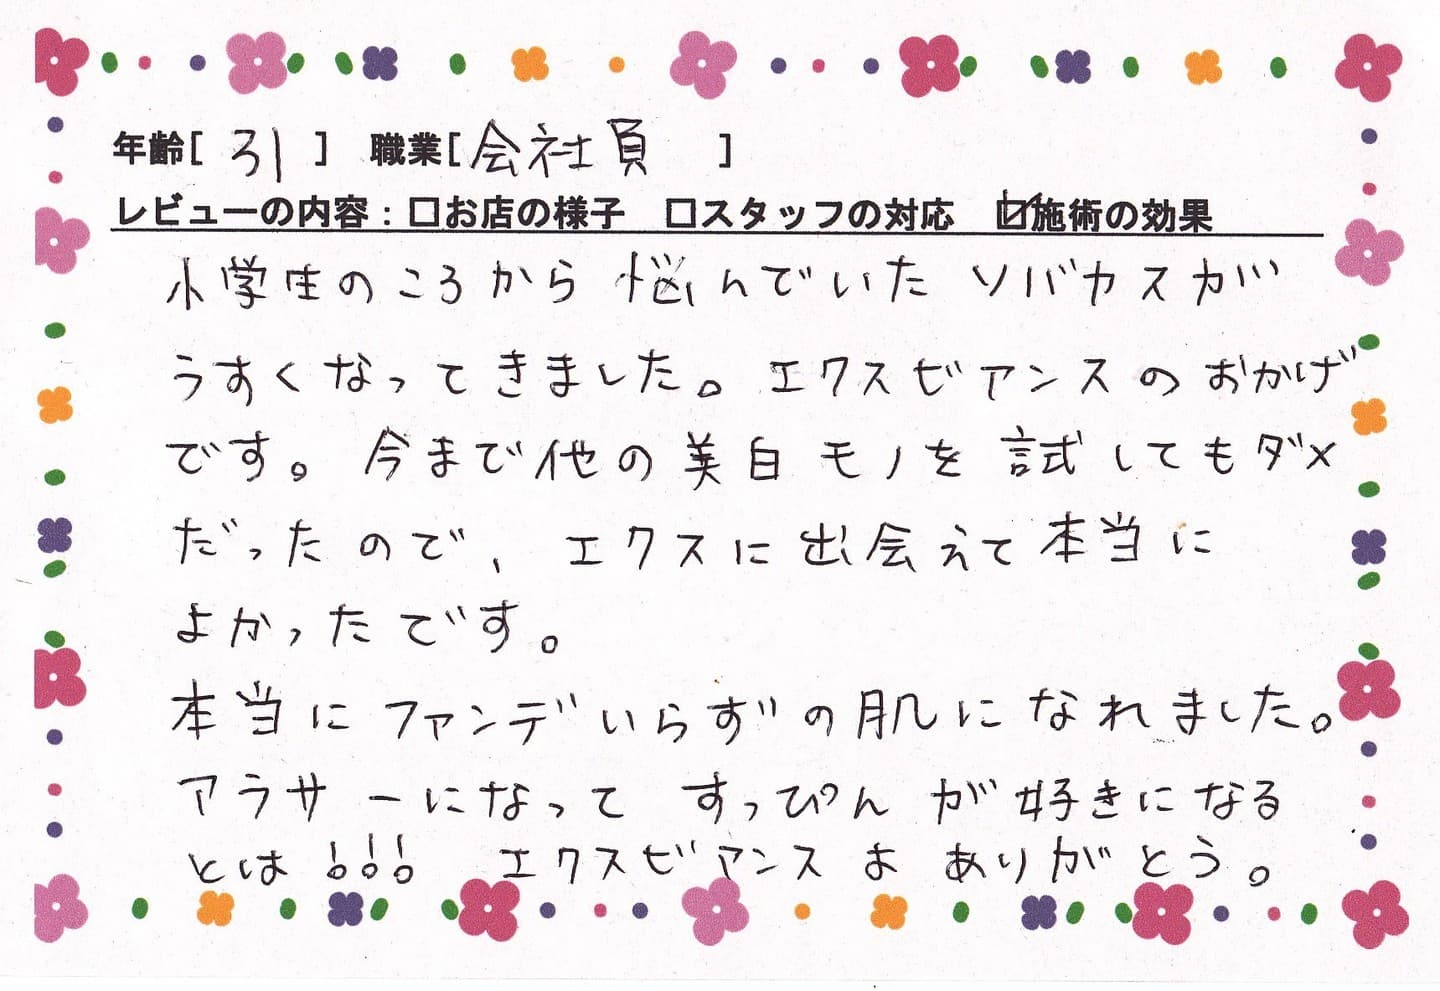 年齢[ 31 ] 職業[ 会社員 ]
レビューの内容：□お店の様子 □スタッフの対応 ☑施術の効果
小学生のころから悩んでいたソバカスが
うすくなってきました。エクスビアンスのおかげ
です。今まで他の美白モノを試してもダメ
だったので、エクスに出会えて本当に
よかったです。
本当にファンデいらずの肌になれました。
アラサーになって すっぴんが好きになる
とは!!! エクスビアンスよ ありがとう。